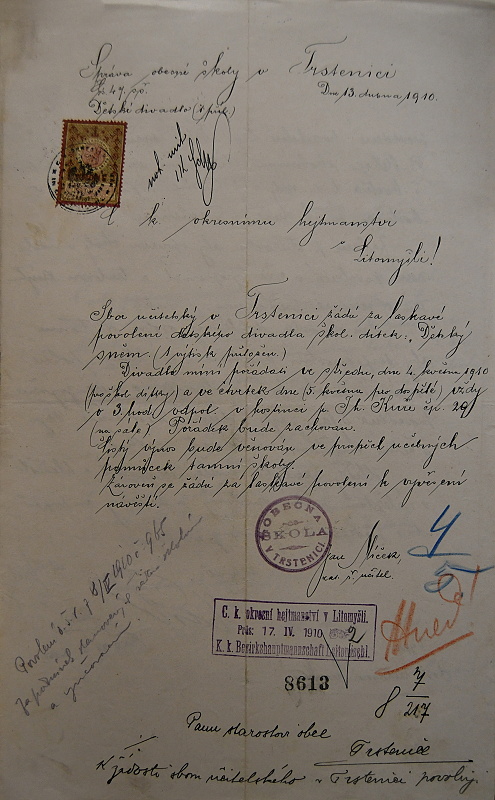 Správa obecné školy v Trstenici
Čís. 47. sp.
Dne 13. dubna 1910.
Dětské divadlo
C. k. okresnímu hejtmanství
v Litomyšli!
Sbor učitelský v Trstenici žádá za laskavé
povolení dětského divadla škol. dítek: „Dětský
sněm. (1 výtisk přiložen.)
Divadlo míní pořádati ve středu, dne 4. května 1910
(pro škol. dítky) a ve čtvrtek dne (5. května pro dospělé) vždy
o 3. hod. odpol. v hostinci p. čp. 29
(na sále). Pořádek bude zachován.
Čistý výnos bude věnován ve prospěch učebných
pomůcek tamní školy.
Zároveň se žádá za laskavé povolení k vyvěšení
návěstí.
OBECNÁ
ŠKOLA
V TRSTENICI
Jan
učitel.
4/5
Ihned!
C. k. okresní hejtmanství v Litomyšli.
Präs: 17. IV. 1910 2
K. k. Bezirkshauptmannschaft Leitomischl.
8613
8 7/217
Povolení
a
Panu starostovi obce
Trstenice
K žádosti sboru učitelského v Trstenici povoluji